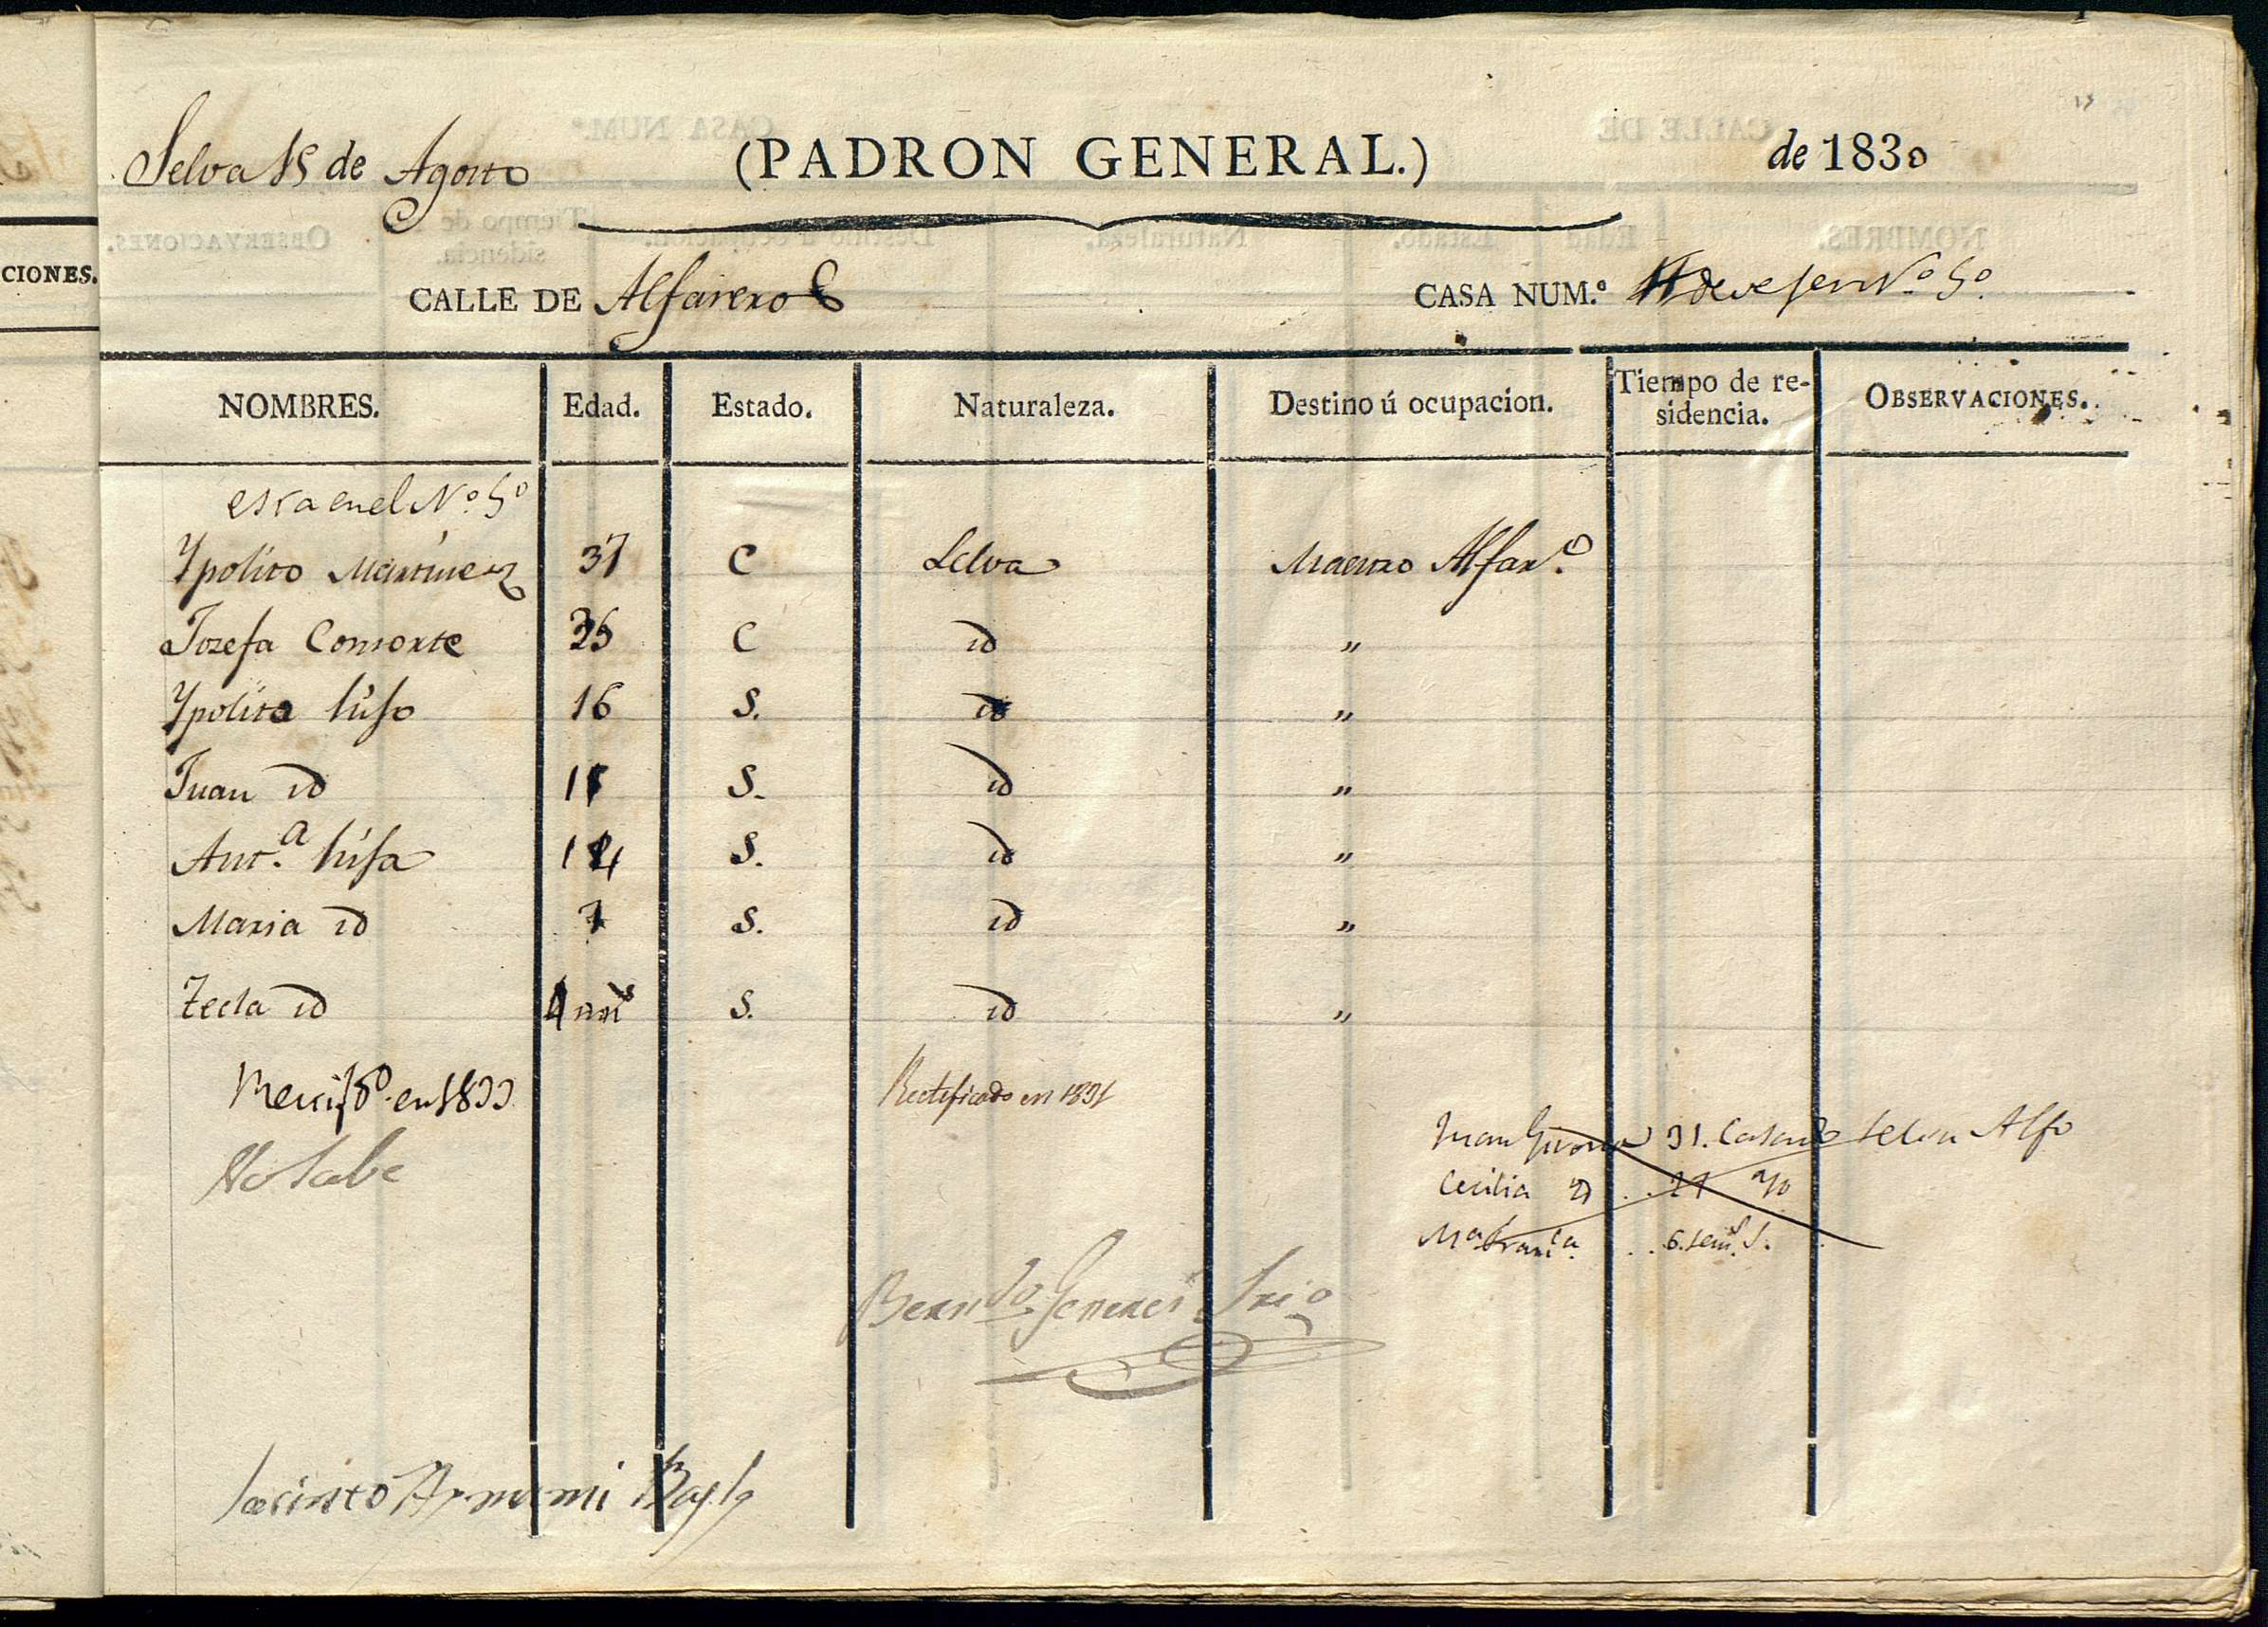 CIONES.
Selva 15 de Agosto (PADRON GENERAL.) de 1830
CALLE DE Alfareros CASA NUM.º deveser Nº 5º
NOMBRES. Edad. Estado. Naturaleza. Destino ú ocupacion. Tiempo de residencia. OBSERVACIONES.
esta en el Nº 5º
Ypolito Martinez 37 C Selva Maestro Alfarº
Jozefa Consorte C id „
Ypolito hijo 16 S. id „
Juan id S. id „
Antª hija S. id „
Maria id S. id „
Tecla id S. id „
en 1833 Rectificado en 1831
Juan 31. Casado Selva Alfo
Cecilia id
Mª Franca 6. sem.s S.
Jacinto